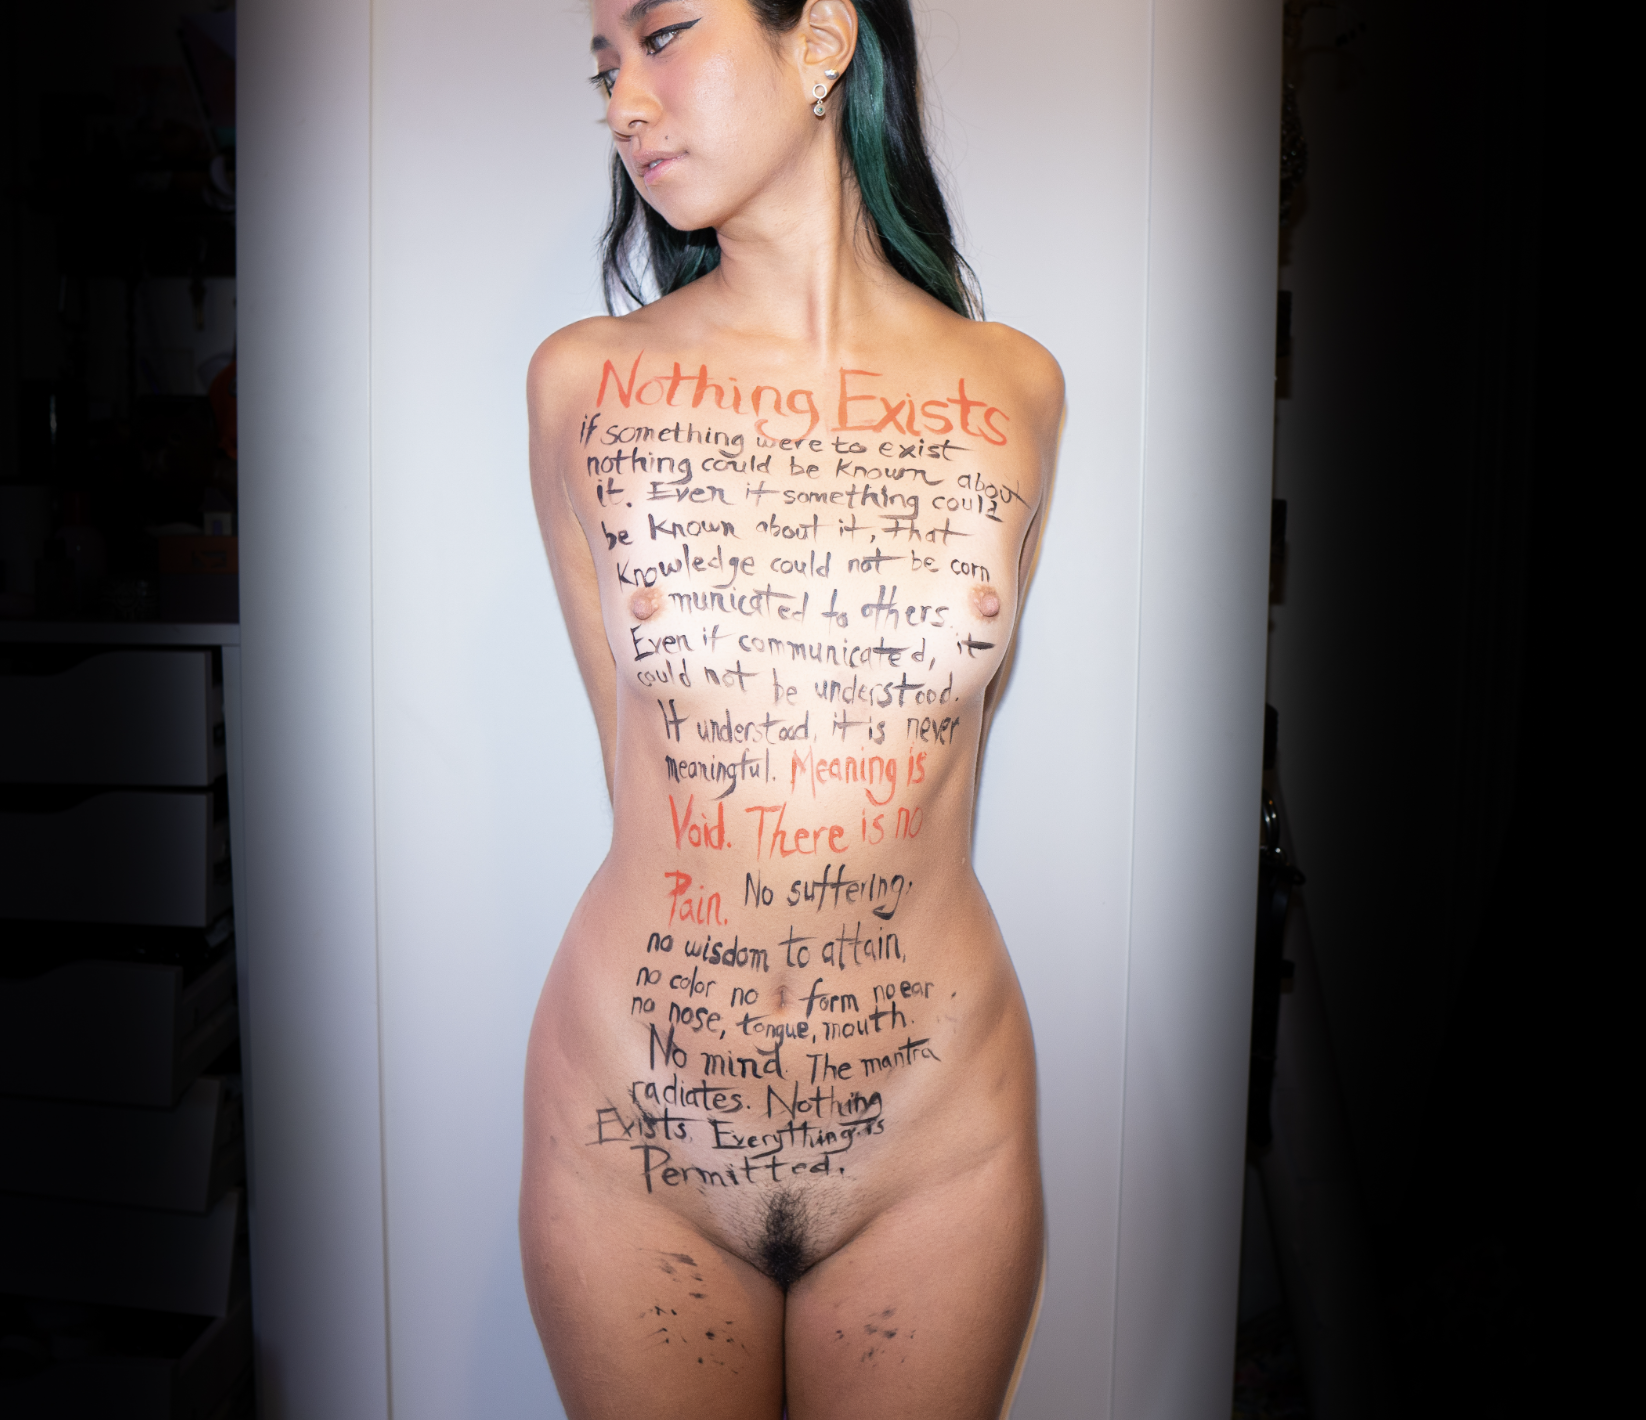 Nothing Exists
if something were to exist
nothing could be known about
it. Even if something could
be known about it, that
knowledge could not be com
municated to others.
Even if communicated, it
could not be understood.
If understood, it is never
meaningful. Meaning is
Void. There is no
Pain. No suffering,
no wisdom to attain,
no color no form no ear.
no nose, tongue, mouth.
No mind. The mantra
radiates. Nothing
Exists. Everything is
Permitted.